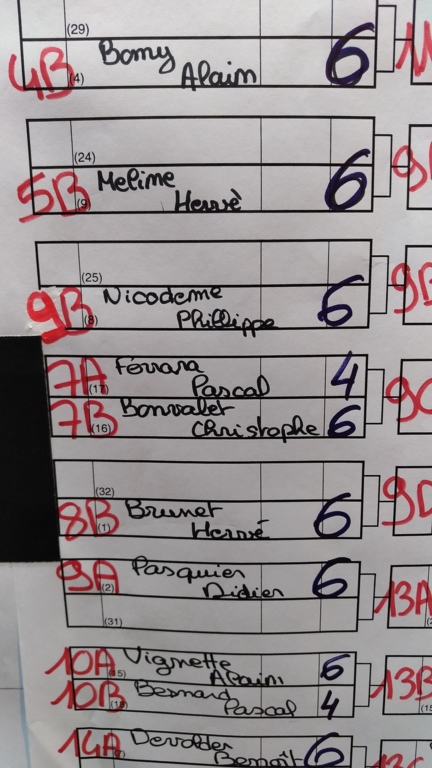 (29)
4B (4) Bomy Alain 6 11
(24)
5B (9) Melime Hervè 6 9
(25)
9B (8) Nicodeme Phillippe 6 9B
7A (17) Ferrara Pascal 4
7B (16) Bonvalet Christophe 6 9C
(32)
8B (1) Brunet Hervé 6 9D
9A (2) Pasquier Didier 6 13A
(31)
10A (15) Vignette Alain 6
10B Besnard Pascal 4 13B
14A Devolder Benoît 6 13C